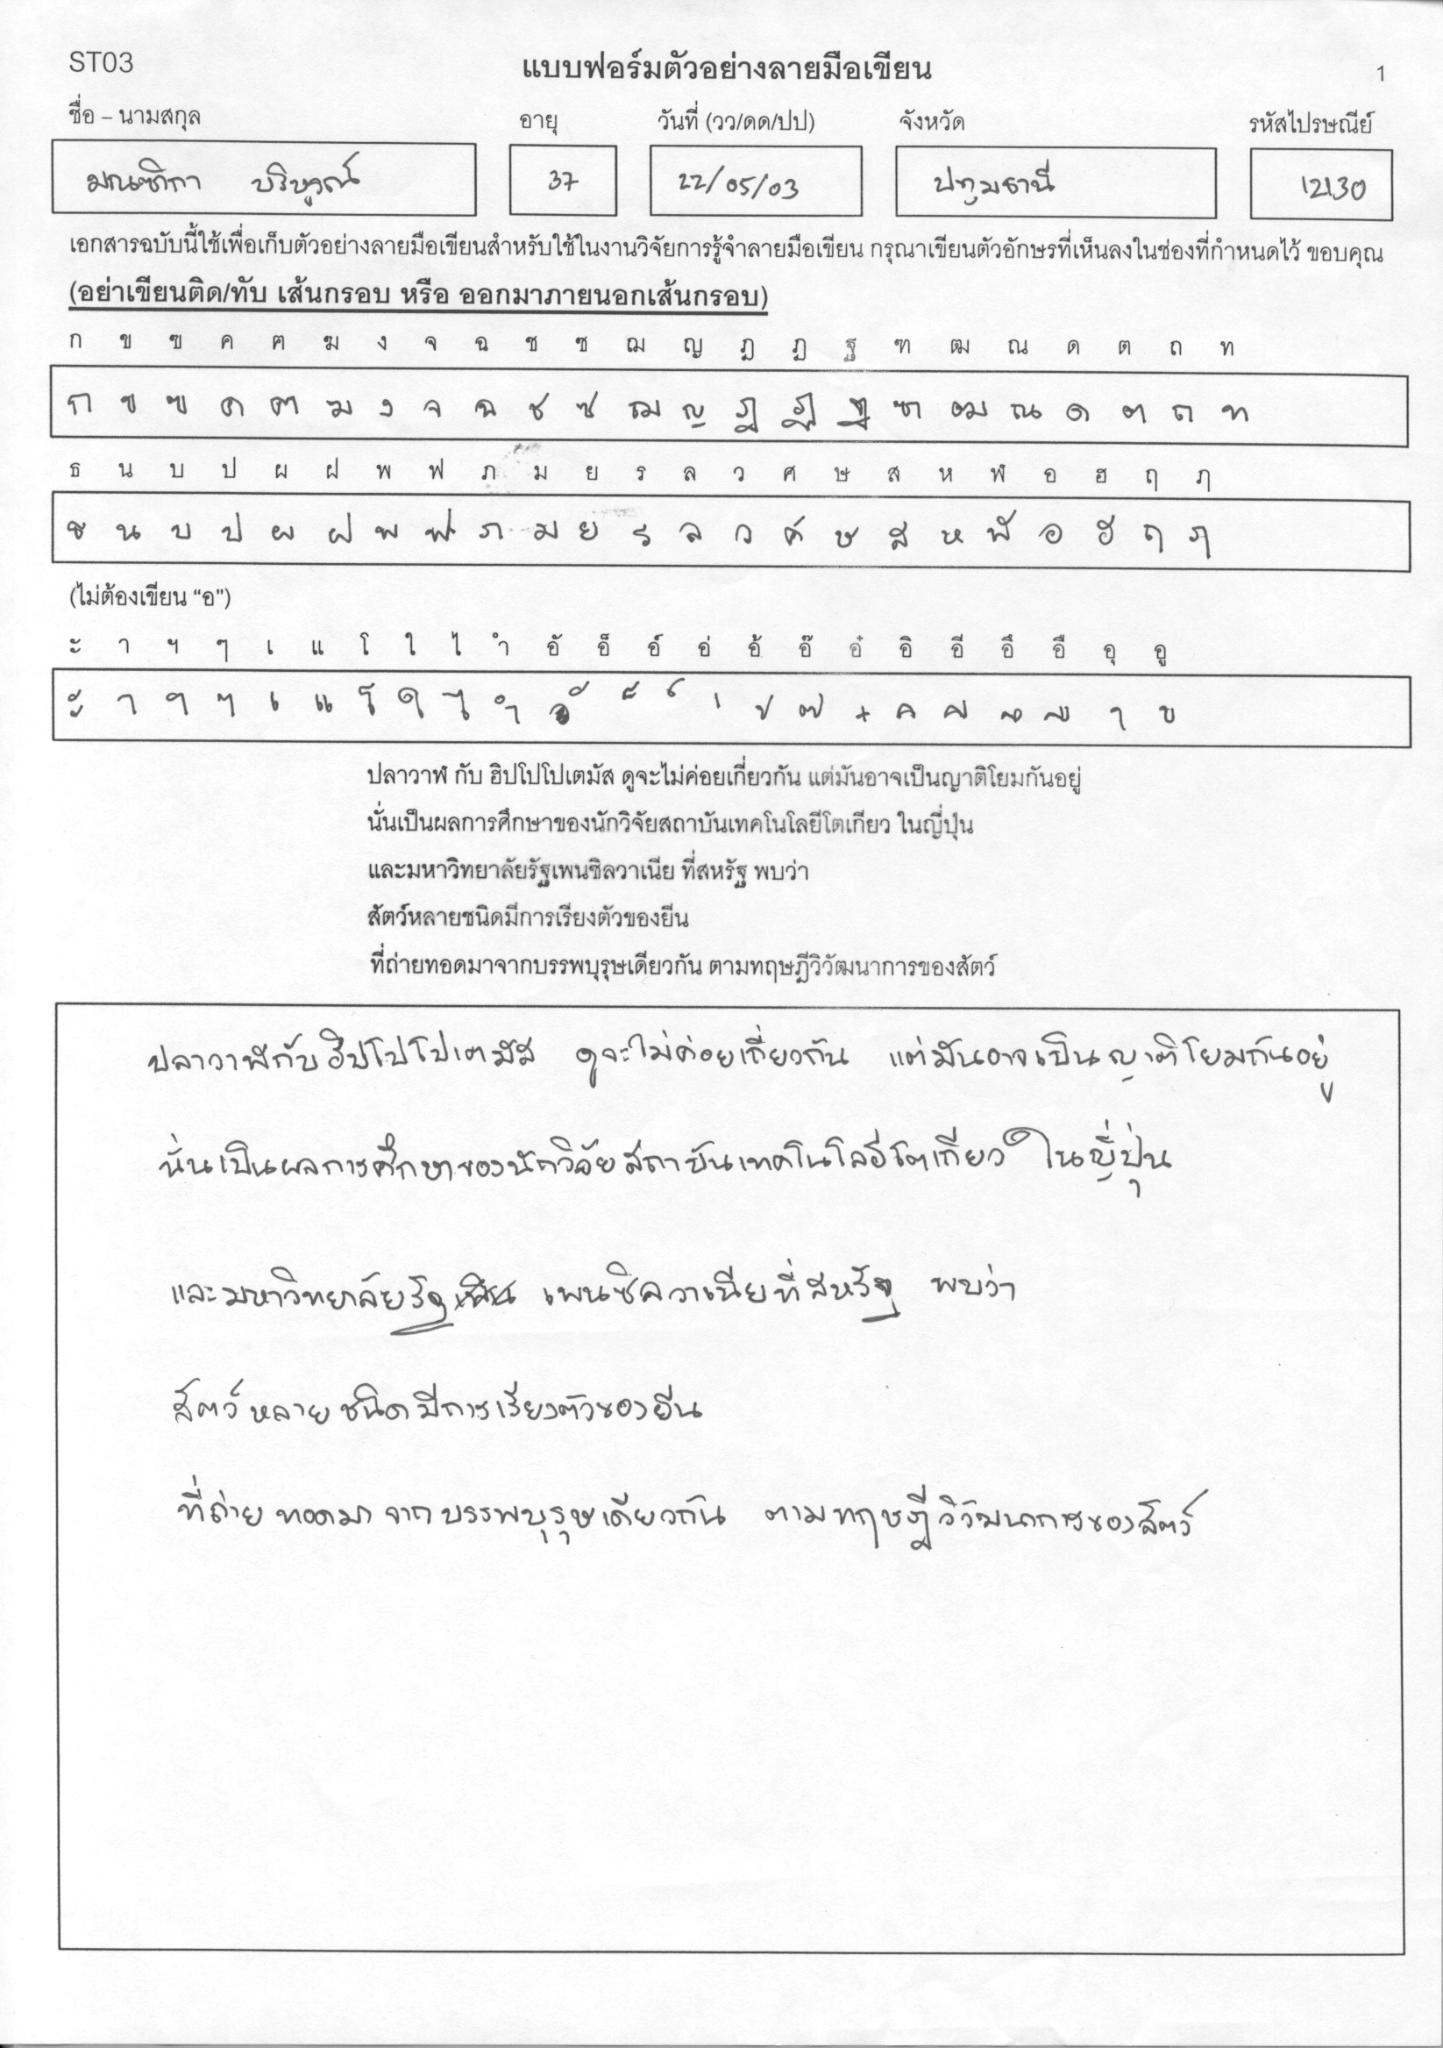 ST03
แบบฟอร์มตัวอย่างลายมือเขียน
1
ชื่อ – นามสกุล อายุ วันที่ (วว/ดด/ปป) จังหวัด รหัสไปรษณีย์
มณฑิกา บริบูรณ์ 37 22/05/03 ปทุมธานี 12130
เอกสารฉบับนี้ใช้เพื่อเก็บตัวอย่างลายมือเขียนสำหรับใช้ในงานวิจัยการรู้จำลายมือเขียน กรุณาเขียนตัวอักษรที่เห็นลงในช่องที่กำหนดไว้ ขอบคุณ
(อย่าเขียนติด/ทับ เส้นกรอบ หรือ ออกมาภายนอกเส้นกรอบ)
ก ข ฃ ค ฅ ฆ ง จ ฉ ช ซ ฌ ญ ฎ ฏ ฐ ฑ ฒ ณ ด ต ถ ท
ก ข ฃ ค ฅ ฆ ง จ ฉ ช ซ ฌ ญ ฎ ฏ ฐ ฑ ฒ ณ ด ต ถ ท
ธ น บ ป ผ ฝ พ ฟ ภ ม ย ร ล ว ศ ษ ส ห ฬ อ ฮ ฤ ฦ
ธ น บ ป ผ ฝ พ ฟ ภ ม ย ร ล ว ศ ษ ส ห ฬ อ ฮ ฤ ฦ
(ไม่ต้องเขียน “อ”)
ะ า ฯ ๆ เ แ โ ใ ไ ำ อั อ็ อ์ อ่ อ้ อ๊ อ๋ อิ อี อึ อื อุ อู
ะ า ฯ ๆ เ แ โ ใ ไ ำ ั ็ ์ ่ ้ ๊ ๋ ิ ี ึ ื ุ ู
ปลาวาฬ กับ ฮิปโปโปเตมัส ดูจะไม่ค่อยเกี่ยวกัน แต่มันอาจเป็นญาติโยมกันอยู่
นั่นเป็นผลการศึกษาของนักวิจัยสถาบันเทคโนโลยีโตเกียว ในญี่ปุ่น
และมหาวิทยาลัยรัฐเพนซิลวาเนีย ที่สหรัฐ พบว่า
สัตว์หลายชนิดมีการเรียงตัวของยีน
ที่ถ่ายทอดมาจากบรรพบุรุษเดียวกัน ตามทฤษฎีวิวัฒนาการของสัตว์
ปลาวาฬกับฮิปโปโปเตมัส ดูจะไม่ค่อยเกี่ยวกัน แต่มันอาจเป็นญาติโยมกันอยู่
นั่นเป็นผลการศึกษาของนักวิจัยสถาบันเทคโนโลยีโตเกียว ในญี่ปุ่น
และมหาวิทยาลัยรัฐ เพนซิลวาเนียที่สหรัฐ พบว่า
สัตว์หลายชนิดมีการเรียงตัวของยีน
ที่ถ่ายทอดมาจากบรรพบุรุษเดียวกัน ตามทฤษฎีวิวัฒนาการของสัตว์